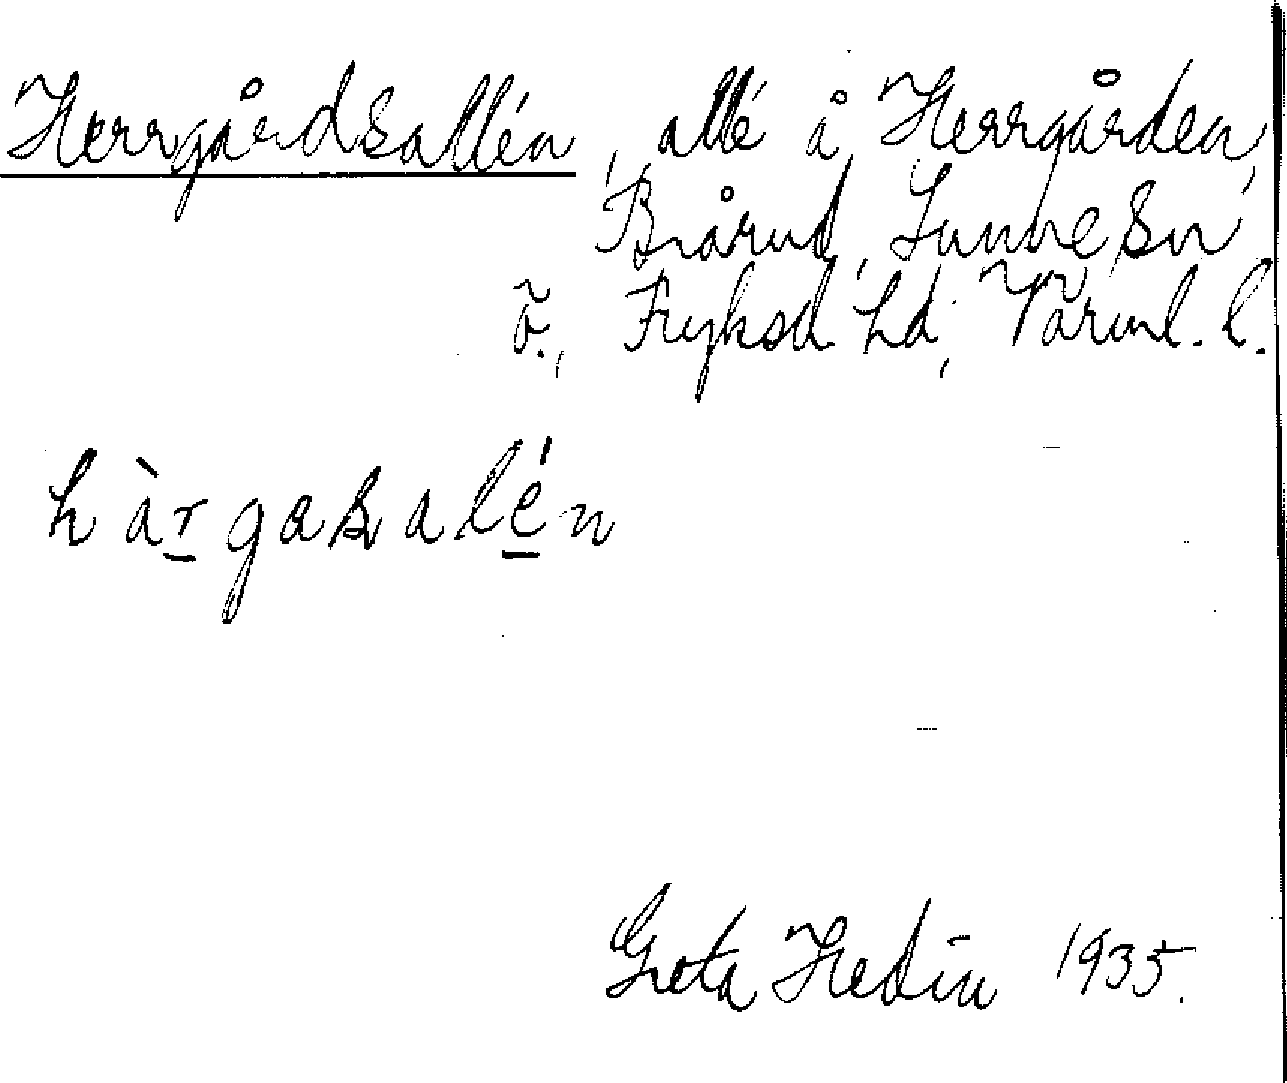 Herrgårdsallén, allé å Herrgården,
Brårud, Sunne sn
ö., Fryksd. hd, Värml. l.
hàrgasalén
Greta Hedin 1935.